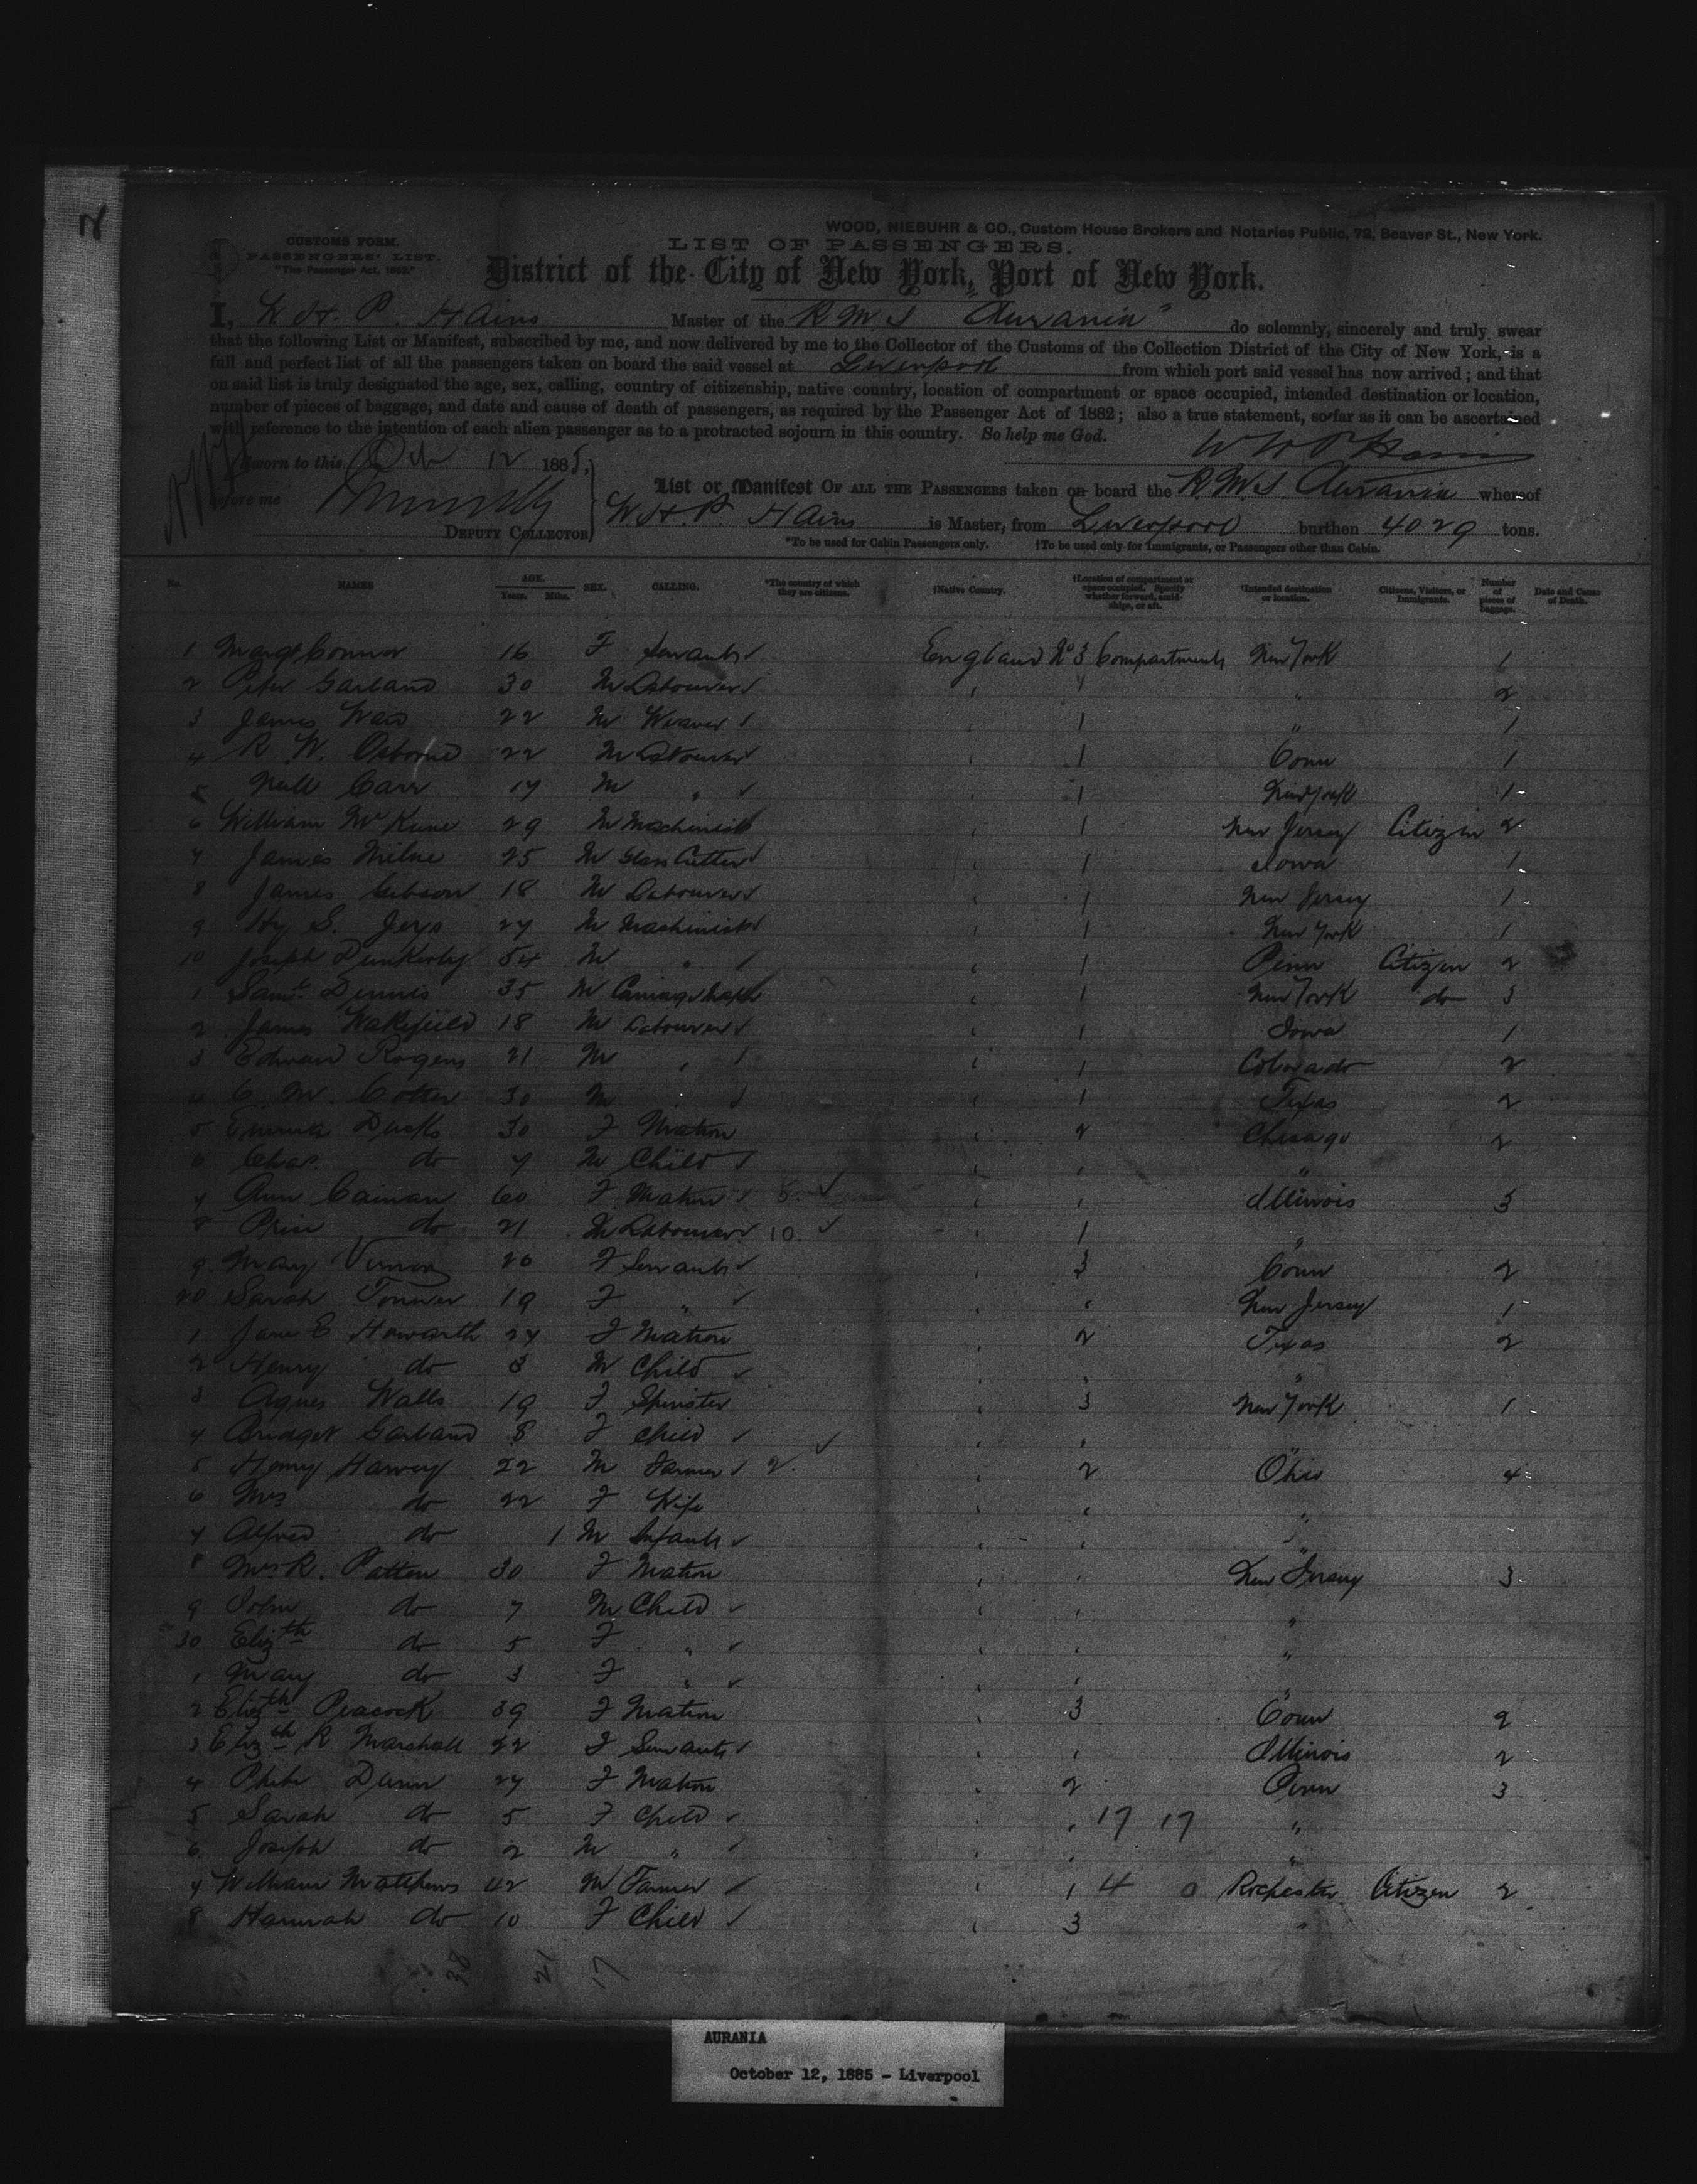 WOOD, NIEBUHR & CO., Custom House Brokers and Notaries Public, 72, Beaver St., New York.
CUSTOMS FORM.
PASSENGERS' LIST.
"The Passenger Act, 1882."
LIST OF PASSENGERS.
District of the City of New York, Port of New York.
I, W. H. P. Hains Master of the R.M.S "Aurania" do solemnly, sincerely and truly swear
that the following List or Manifest, subscribed by me, and now delivered by me to the Collector of the Customs of the Collection District of the City of New York, is a
full and perfect list of all the passengers taken on board the said vessel at Liverpool from which port said vessel has now arrived; and that
on said list is truly designated the age, sex, calling, country of citizenship, native country, location of compartment or space occupied, intended destination or location,
number of pieces of baggage, and date and cause of death of passengers, as required by the Passenger Act of 1882; also a true statement, so far as it can be ascertained
with reference to the intention of each alien passenger as to a protracted sojourn in this country. So help me God.
W H P Hains
Sworn to this Oct 12 1885,
before me
DEPUTY COLLECTOR
List or Manifest OF ALL THE PASSENGERS taken on board the R.M.S. Aurania whereof
W.H.P. Hains is Master, from Liverpool burthen 4029 tons.
*To be used for Cabin Passengers only. †To be used only for Immigrants, or Passengers other than Cabin.
No. NAMES AGE. Years. Mths. SEX. CALLING. *The country of which they are citizens. †Native Country. †Location of compartment or space occupied. Specify whether forward, amidships, or aft. *Intended destination or location. Citizens, Visitors, or Immigrants. Number of pieces of baggage. Date and Cause of Death.
1 Margt Connor 16 F Servant England No 3 Compartment New York 1
2 Peter Garland 30 M Labourer 1 " 2
3 James 22 M Weaver 1 " 1
4 R. W. Osborne 22 M Labourer 1 Conn 1
5 Carr 17 M " 1 New York 1
6 William McKune 29 M Machinist 1 New Jersey Citizen 2
7 James Milne 25 M Glass Cutter 1 Iowa 1
8 James Gibson 18 M Labourer 1 New Jersey 1
9 Hy S. 27 M Machinist 1 New York 1
10 Joseph Dunkerley 54 M " 1 Penn Citizen 2
1 Saml Dennis 35 M 1 New York do 3
2 James Wakefield 18 M Labourer 1 Iowa 1
3 Edward Rogers 21 M " 1 Colorado 2
4 C. M. Cotter 30 M " 1 Texas 2
5 30 F Matron 2 Chicago 2
6 Chas do 7 M Child "
7 Ann Cainan 60 F Matron 8 Illinois 3
8 do 21 M Labourer 10 1 "
9 Mary Vernon 20 F Servant 3 Conn 2
20 Sarah 19 F " New Jersey 1
1 Jane E Howarth 27 F Matron 2 Texas 2
2 Henry do 3 M Child "
3 Agnes Walls 19 F Spinster 3 New York 1
4 Bridget Garland 8 F Child "
5 Henry Harvey 22 M Farmer 2 2 Ohio 4
6 Mrs do 22 F Wife "
7 Alfred do 1 M Infant "
8 Mrs R. Patten 30 F Matron New Jersey 3
9 John do 7 M Child "
30 Elizth do 5 F " "
1 Mary do 3 F " "
2 Elizth Peacock 39 F Matron 3 Conn 2
3 Elizth R Marshall 22 F Servant Illinois 2
4 Phebe Dunn 27 F Matron 2 Penn 3
5 Sarah do 5 F Child 17 17 "
6 Joseph do 2 M " "
7 William Matthews 42 M Farmer 1 4 0 Rochester Citizen 2
8 Hannah do 10 F Child 3 "
38 21 17
AURANIA
October 12, 1885 - Liverpool